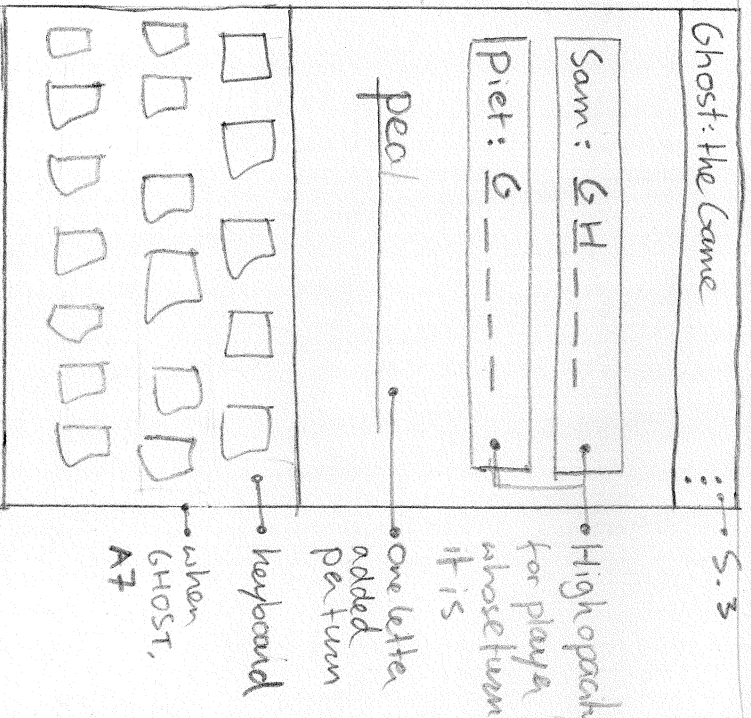 Ghost: the Game
S.3
Sam: G H _ _ _
Piet: G _ _ _ _
High opacit
for player
whose turn
it is
pea
one letter
added
per turn
keyboard
when
GHOST,
A7